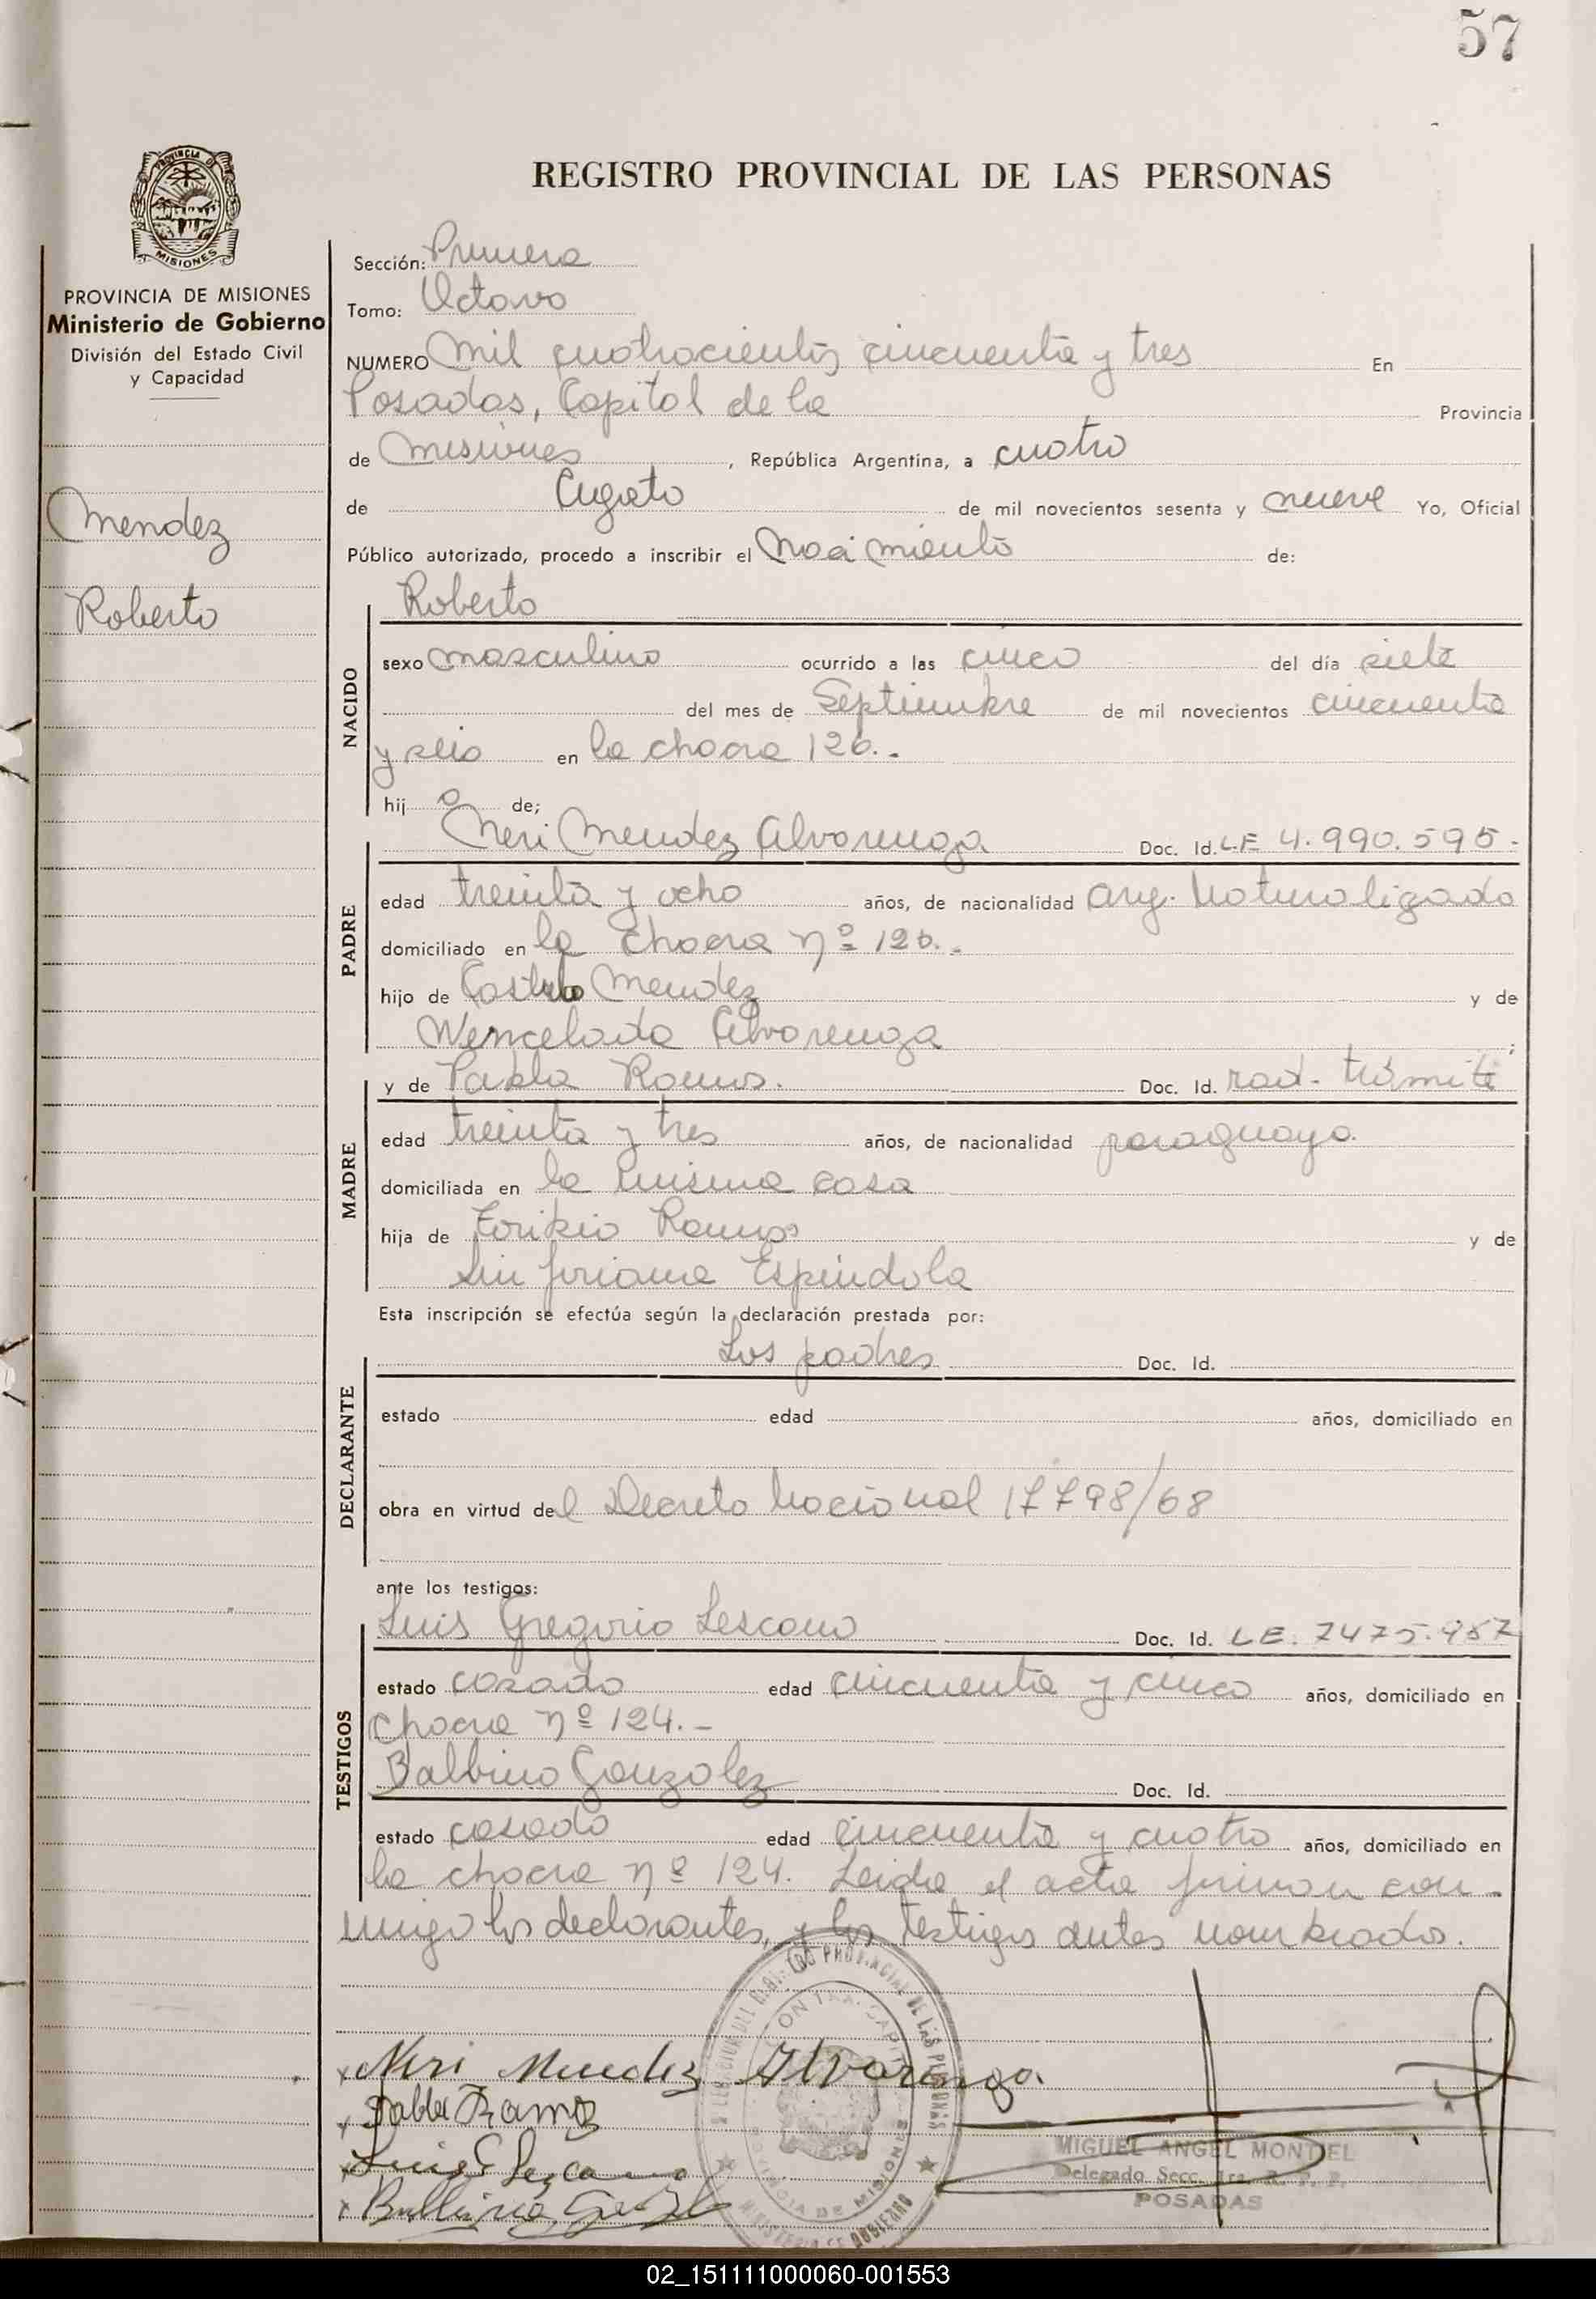 57
REGISTRO PROVINCIAL DE LAS PERSONAS
PROVINCIA DE MISIONES
Ministerio de Gobierno
División del Estado Civil
y Capacidad
Mendez
Roberto
Sección: Primera
Tomo: Octavo
NUMERO Mil cuatrocientos cincuenta y tres En
Posadas, Capital de la Provincia
de Misiones, República Argentina, a cuatro
de Agosto de mil novecientos sesenta y nueve Yo, Oficial
Público autorizado, procedo a inscribir el Nacimiento de:
NACIDO
Roberto
sexo masculino ocurrido a las cinco del día siete
del mes de Septiembre de mil novecientos cincuenta
y seis en la chacra 126.-
hijo de;
PADRE
Neri Mendez Alvarenga Doc. Id. LE 4.990.595.-
edad treinta y ocho años, de nacionalidad Arg. Naturalizado
domiciliado en la chacra nº 126.-
hijo de Mendez y de
Wencelada Alvarenga;
MADRE
y de Pabla Ramos. Doc. Id. rad. trámite
edad treinta y tres años, de nacionalidad paraguaya.
domiciliada en la misma casa
hija de Toribio Ramos y de
Sinforiana Espindola
Esta inscripción se efectúa según la declaración prestada por:
DECLARANTE
Los padres Doc. Id.
estado edad años, domiciliado en
obra en virtud del Decreto Nacional 17798/68
ante los testigos:
TESTIGOS
Luis Gregorio Lescano Doc. Id. LE. 7475.957
estado casado edad cincuenta y cinco años, domiciliado en
chacra nº 124.-
Balbino Gonzalez Doc. Id.
estado casado edad cincuenta y cuatro años, domiciliado en
la chacra nº 124. Leida el acta firman con-
migo los declarantes, y los testigos antes nombrados.
Neri Mendez Alvarenga.
Pabla Ramos
MIGUEL ANGEL MONTIEL
Delegado Secc. 1ra. R. P. P.
POSADAS
02_151111000060-001553